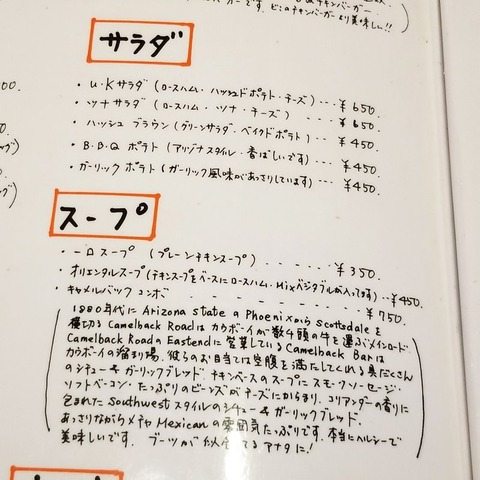 チキンバーガー
です。どこのチキンバーガーより美味しい!!
サラダ
・U・Kサラダ (ロースハム・ハッシュドポテト・チーズ)・・・¥650.
・ツナサラダ (ロースハム・ツナ・チーズ)・・・・¥650.
・ハッシュブラウン (グリーンサラダ・ベイクドポテト)・・・¥450.
・B・B・Qポテト (アリゾナスタイル・香ばしいです)・・・¥450.
・ガーリックポテト (ガーリック風味があっさりしています)・・・・¥450.
スープ
・一口スープ (プレーンチキンスープ)・・・・・・・¥350.
・オリエンタルスープ (チキンスープをベースにロースハム・Mixベジタブルが入ってます)・・¥450.
・キャメルバックコンボ・・・・・・・・・・¥750.
1880年代に Arizona state の Phoenixから Scottsdale を
横切る Camelback Road は カウボーイが数千頭の牛を運ぶメインロード.
Camelback Road の Eastend に営業している Camelback Bar は
カウボーイの溜まり場. 彼らのお目当ては空腹を満たしてくれる具だくさん
のシチュー&ガーリックブレッド. チキンベースのスープにスモークソーセージ・
ソフトベーコン・たっぷりのビーンズがチーズにからまり. コリアンダーの香りに
包まれた Southwest スタイルのシチュー&ガーリックブレッド.
あっさりながら メチャ Mexican の雰囲気たっぷりです. 本当にヘルシーで
美味しいです. ブーツが似合ってるアナタに!